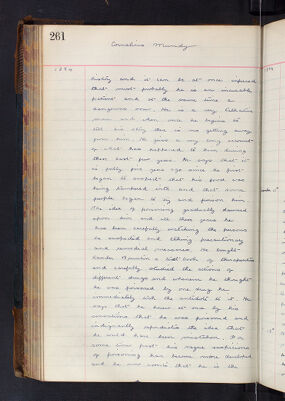 261
Cornelius Mundy
1894
history and it can be at once inferred
that most probably he is an incurable
patient and at the same time a
dangerous man. He is a very talkative
man and when once he begins to
tell his story there is no getting away
from him. He gave a very long account
of what has happened to him during
these last few years. He says that it
is fully five years ago since he first
began to suspect that his food was
being tampered with and that some
people began to try and poison him.
The idea of poisoning gradually dawned
upon him and all these years he
has been carefully watching the persons
he suspected and taking precautionary
and remedial measures. He bought
a book of therapeutics
and carefully studied the actions of
different drugs and whenever he thought
he was poisoned by one drug he
immediately took the antidote to it. He
says that he knows it was by his
convictions that he was poisoned and
indignantly repudiates the idea that
he could have been mistaken. For
some time past his vague suspicions
of poisoning has become more decided
and he now asserts that he is the